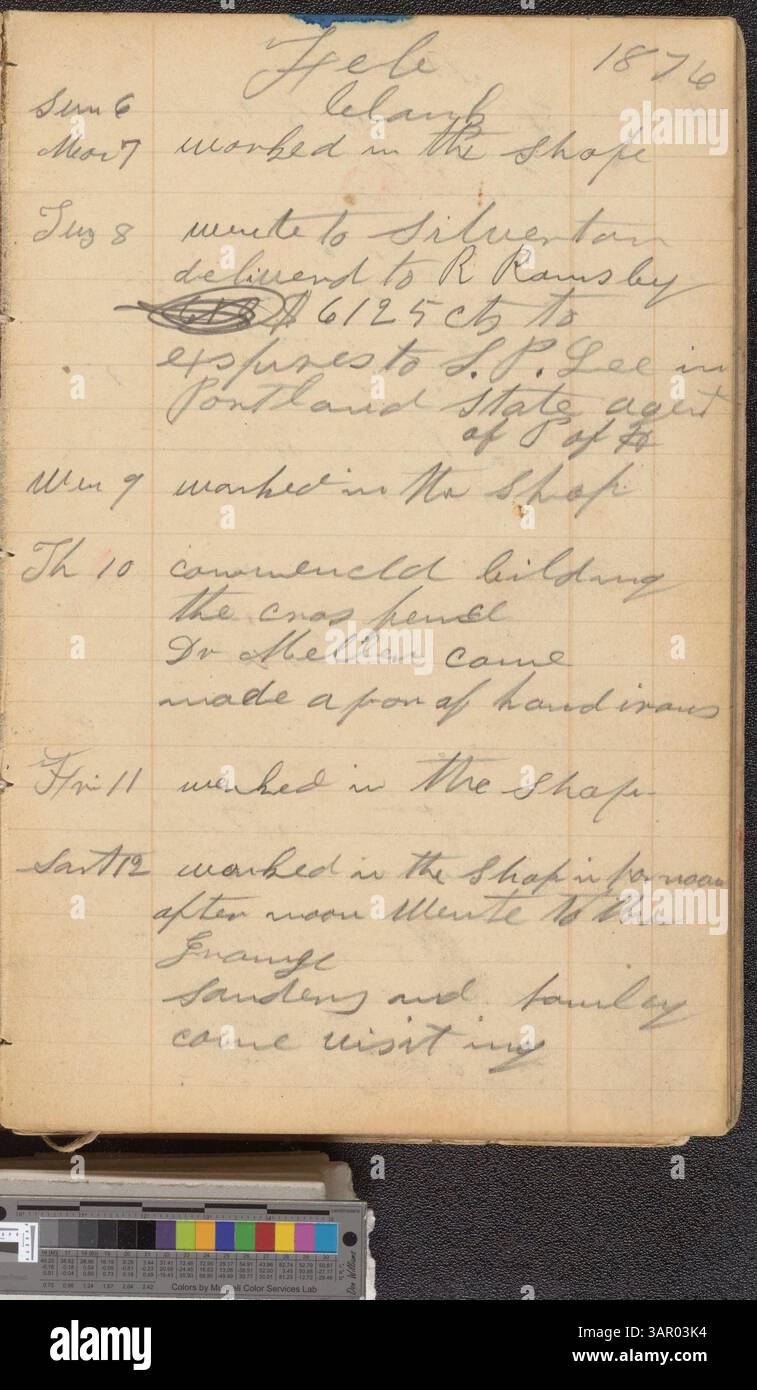 Feb 1876
Sun 6 blank
Mon 7 worked in the shope
Tus 8 wente to Silverton
deliverd to R Ramsby
$ 6125 cts to
expres to S. P. Lee in
Portland State agent
of P of H
Wen 9 worked in the shop
Th 10 commencld bilding
the cros fence
Dr Mellen came
made a par of hand irons
Fri 11 worked in the shop
Sart 12 worked in the shop in fornoon
after noon wente to the
Grange
Sanders and famley
came visit ing
Colors by Munsell Color Services Lab
Don Williams
alamy
Image ID: 3AR03K4
www.alamy.com